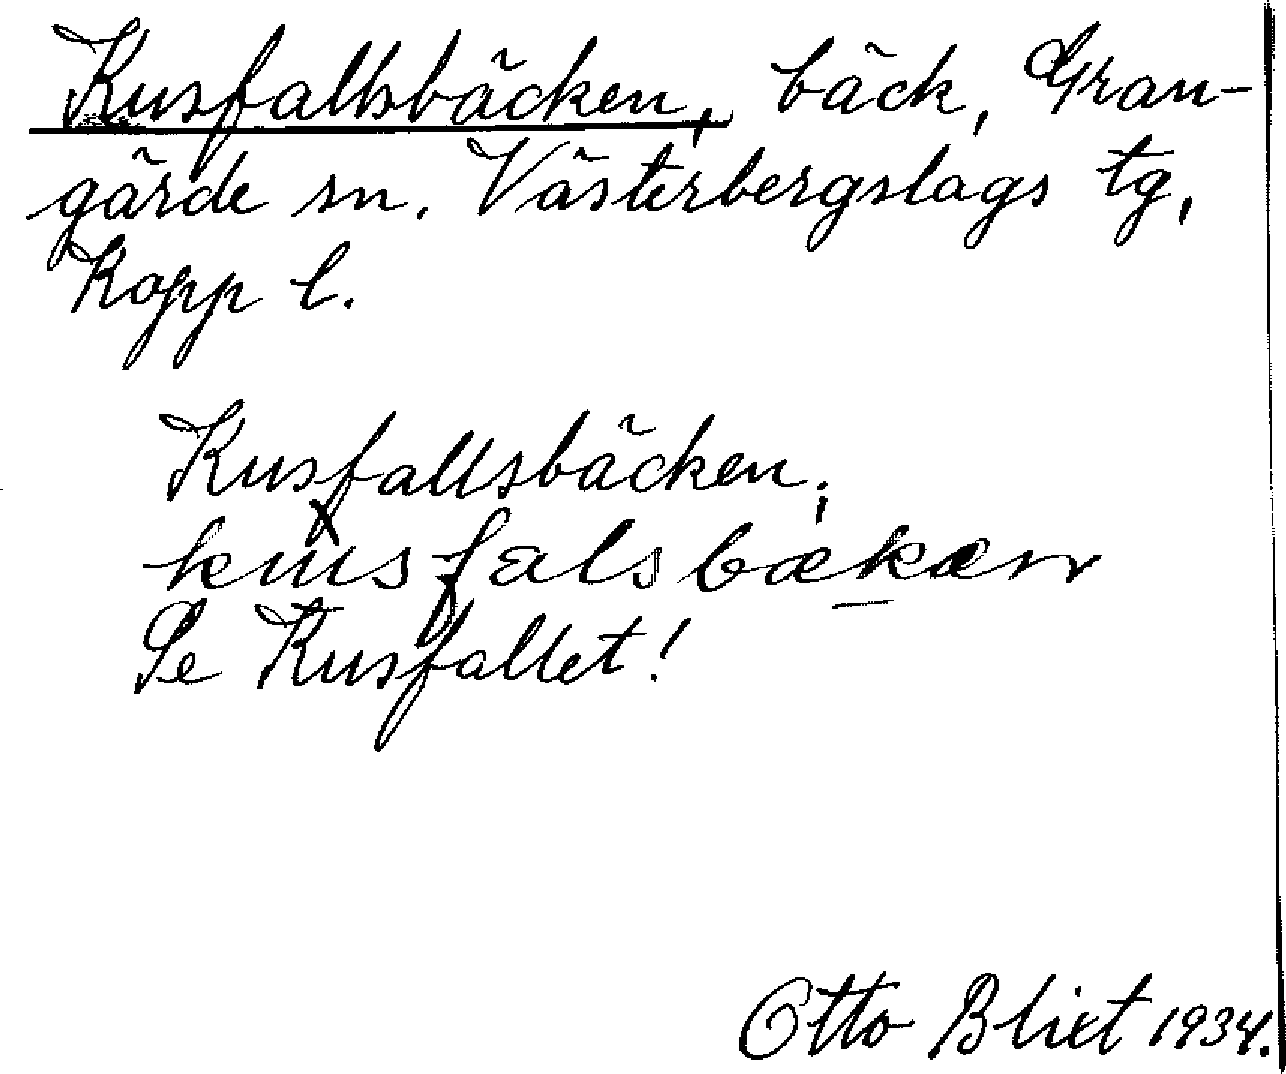 Kusfallsbäcken, bäck, Gran-
gärde sn. Västerbergslags tg,
Kopp l.
Kusfallsbäcken;
Se Kusfallet!
Otto Blixt 1934.